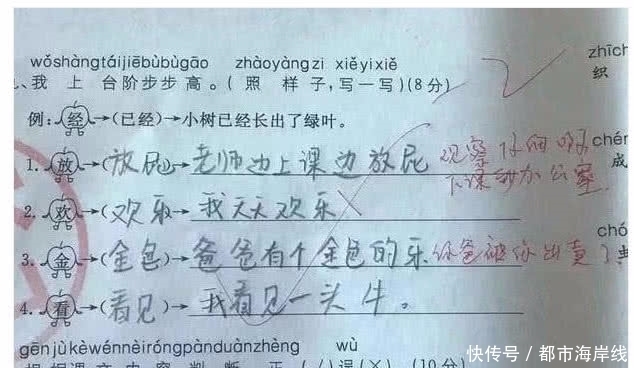 wǒshàngtáijiēbùbùgāo zhàoyàngzi xiěyixiě
zhīch
、我 上 台阶步步高。(照 样 子,写一写)(8分)
织
例:经→(已经)→小树已经长出了绿叶。
1.放→(放屁)→老师边上课边放屁 观察仔细啊
chén
成
下课来办公室
2.欢→(欢乐)→我天天欢乐
chó
3.金→(金色)→爸爸有个金色的牙 你爸被你出卖了
4.看→(看见)→我看见一头牛。
gēnjùkèwénnèiróngpànduànzhèng wù
根据课文内容判断正(√)误(×)(10分)
快传号/都市海岸线